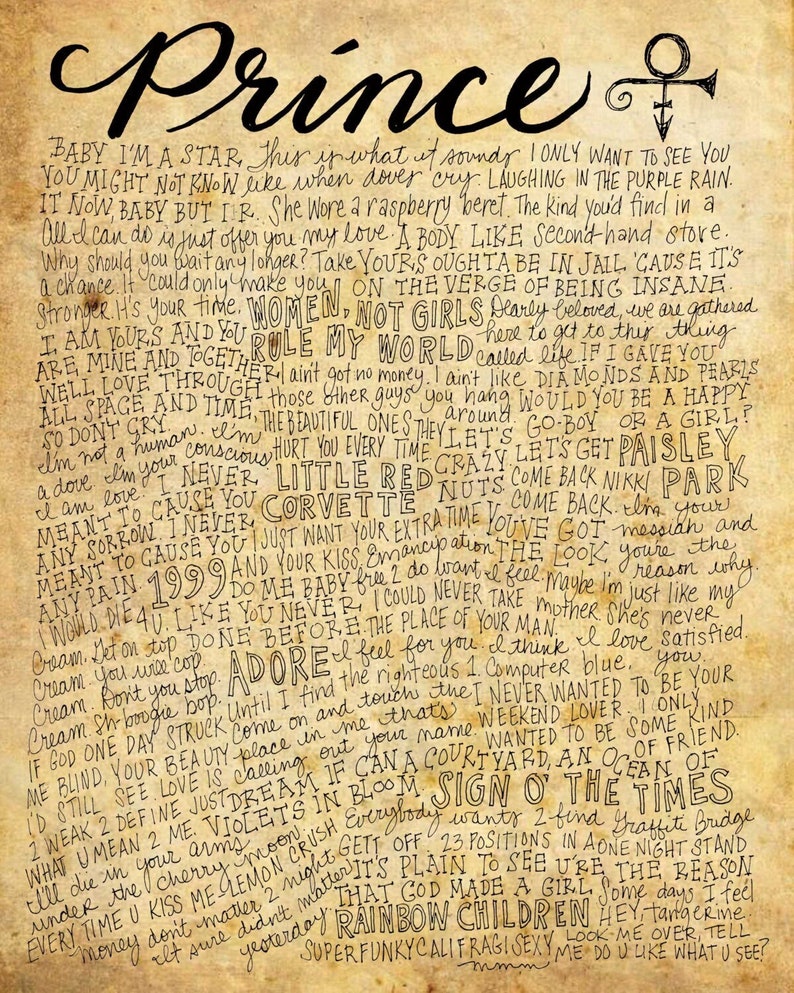 Prince
BABY I'M A STAR, This is what it sounds I ONLY WANT TO SEE YOU
YOU MIGHT NOT KNOW like when doves cry. LAUGHING IN THE PURPLE RAIN.
IT NOW, BABY BUT I R. She wore a raspberry beret. The kind you'd find in a
All I can do is just offer you my love. A BODY LIKE second-hand store.
Why should you wait any longer? Take YOURS OUGHTA BE IN JAIL 'CAUSE IT'S
a chance. It could only make you ON THE VERGE OF BEING INSANE.
Stronger. It's your time. WOMEN, NOT GIRLS Dearly beloved, we are gathered
I AM YOURS AND YOU RULE MY WORLD here to get to this thing
ARE MINE AND TOGETHER called life IF I GAVE YOU
WE'LL LOVE THROUGH I ain't got no money. I ain't like DIAMONDS AND PEARLS
ALL SPACE AND TIME, those other guys you hang WOULD YOU BE A HAPPY
SO DONT CRY. THE BEAUTIFUL ONES THEY around. LET'S GO-BOY OR A GIRL?
I'm not a human. I'm HURT YOU EVERY TIME CRAZY. LET'S GET PAISLEY
a dove. I'm your conscious LITTLE RED NUTS. COME BACK NIKKI PARK
I am love. I NEVER CORVETTE COME BACK. I'm your
MEANT TO CAUSE YOU I JUST WANT YOUR EXTRA TIME YOU'VE GOT messiah and
ANY SORROW. I NEVER AND YOUR KISS. Emancipation THE LOOK you're the
MEANT TO CAUSE YOU DO ME BABY free 2 do want I feel. reason why.
ANY PAIN. 1999 LIKE YOU NEVER I COULD NEVER TAKE Maybe I'm just like my
I WOULD DIE 4 U. DONE BEFORE. THE PLACE OF YOUR MAN. mother. She's never
Cream. Get on top I feel for you. I think I love satisfied.
Cream. You will cop ADORE you.
Cream. Don't you stop. Until I find the righteous 1. Computer blue.
Cream. Sh-boogie bop. come on and touch the I NEVER WANTED TO BE YOUR
IF GOD ONE DAY STRUCK place in me that's WEEKEND LOVER. I ONLY
ME BLIND, YOUR BEAUTY calling out your name. WANTED TO BE SOME KIND
I'D STILL SEE LOVE IS DREAM IF CAN A COURTYARD, AN OCEAN OF OF FRIEND.
2 WEAK 2 DEFINE JUST VIOLETS IN BLOOM. SIGN O' THE TIMES
WHAT U MEAN 2 ME. Everybody wants 2 find Graffiti Bridge
I'll die in your arms GETT OFF 23 POSITIONS IN A ONE NIGHT STAND
under the cherry moon. IT'S PLAIN TO SEE U'RE THE REASON
EVERY TIME U KISS ME LEMON CRUSH THAT GOD MADE A GIRL Some days I feel
money don't matter 2 night RAINBOW CHILDREN HEY, tangerine.
It sure didn't matter LOOK ME OVER, TELL
yesterday. SUPERFUNKYCALIFRAGISEXY ME DO U LIKE WHAT U SEE?
mmm